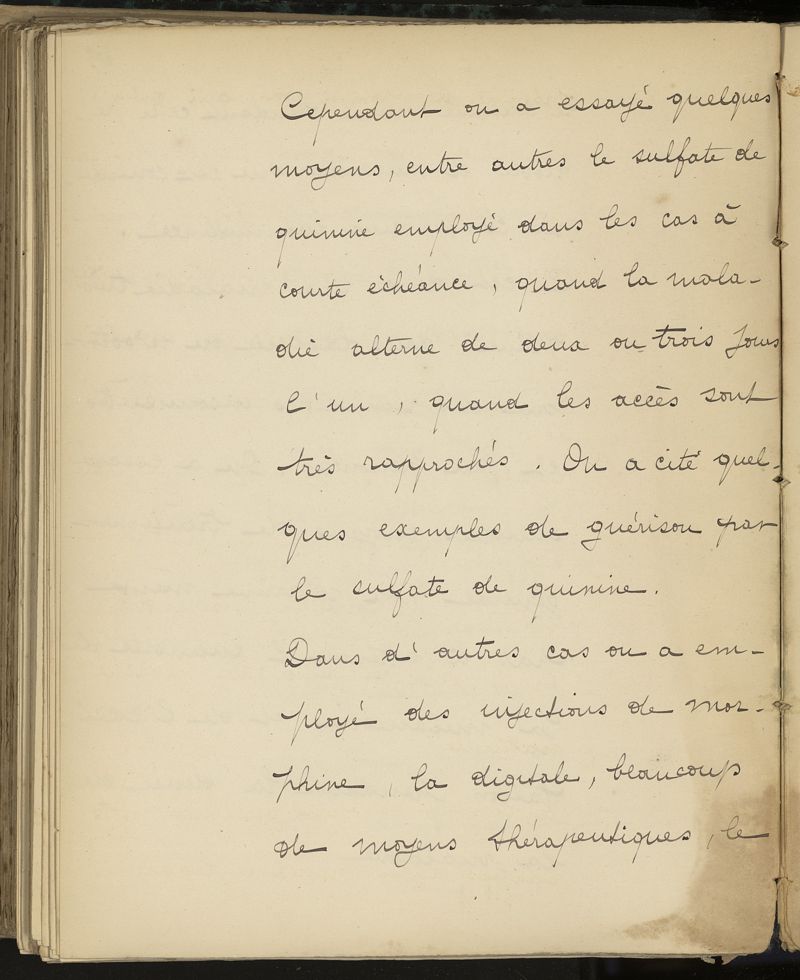 Cependant on a essayé quelques
moyens, entre autres le sulfate de
quinine employé dans les cas à
courte échéance, quand la mala-
die alterne de deux ou trois jours
l'un, quand les accès sont
très rapprochés. On a cité quel-
ques exemples de guérison par
le sulfate de quinine.
Dans d'autres cas on a em-
ployé des injections de mor-
phine, la digitale, beaucoup
de moyens thérapeutiques, le